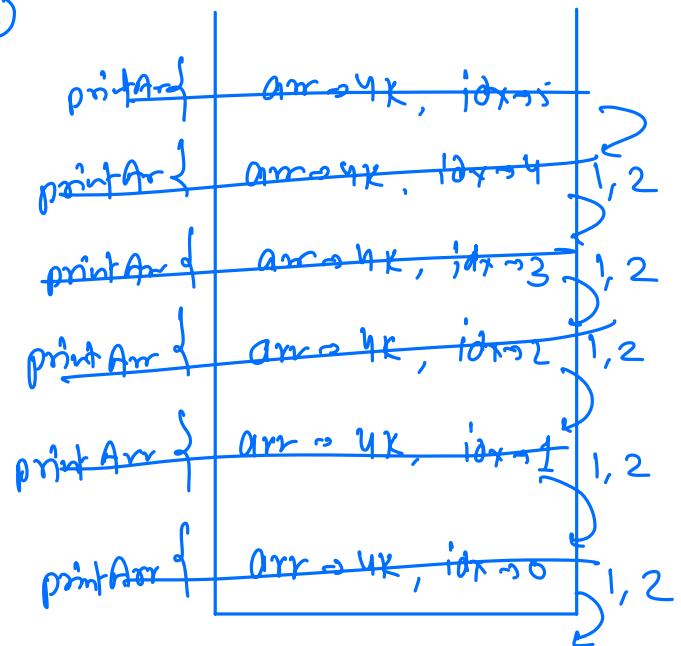 printArr{ arr → 4K, idx → 5
printArr{ arr → 4K, idx → 4 1, 2
printArr{ arr → 4K, idx → 3 1, 2
printArr{ arr → 4K, idx → 2 1, 2
printArr{ arr → 4K, idx → 1 1, 2
printArr{ arr → 4K, idx → 0 1, 2